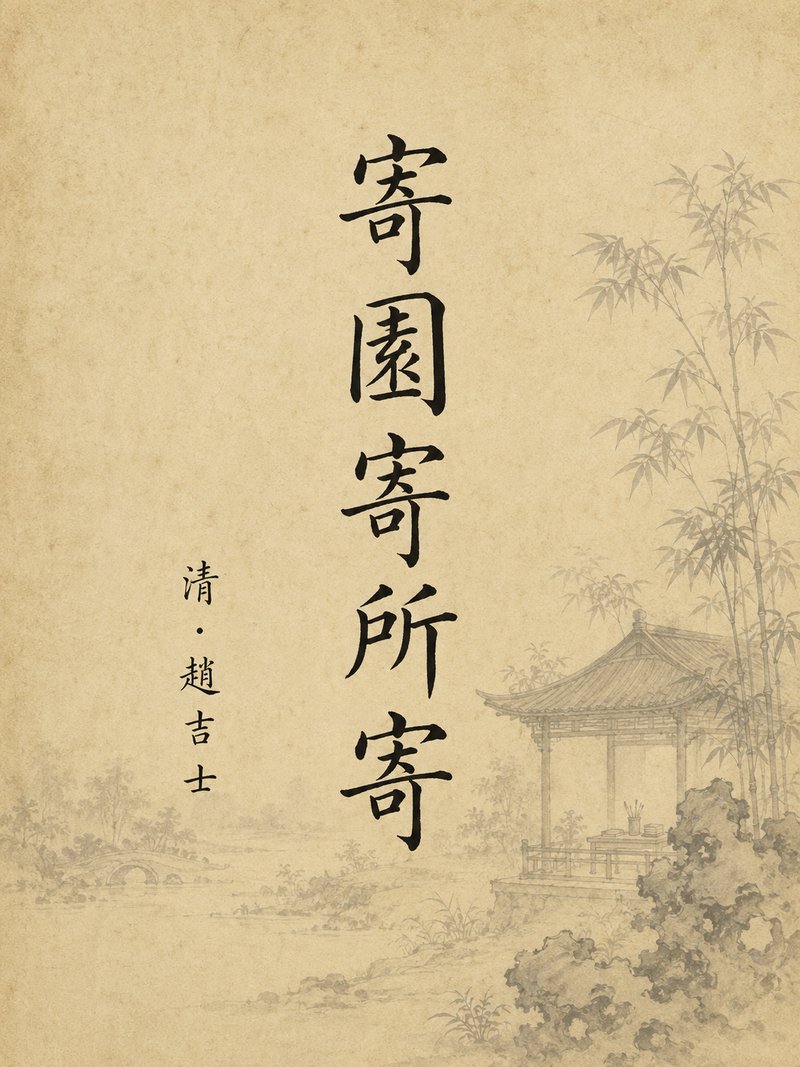 寄園寄所寄
清·趙吉士